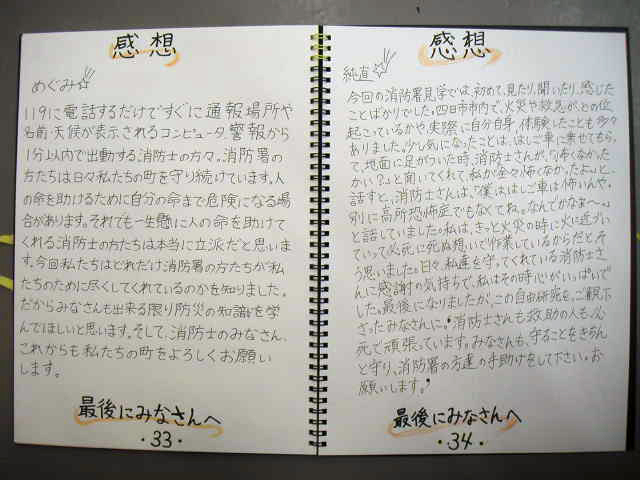 感想
めぐみ
119に電話するだけですぐに通報場所や
名前・天候が表示されるコンピュータ。警報から
1分以内で出動する消防士の方々。消防署の
方たちは日々私たちの町を守り続けています。人
の命を助けるために自分の命まで危険になる場
合があります。それでも一生懸に人の命を助けて
くれる消防士の方たちは本当に立派だと思いま
す。今回私たちはどれだけ消防署の方たちが私
たちのために尽くしてくれているのかを知りました。
だからみなさんも出来る限り防災の知識を学
んでほしいと思います。そして、消防士のみなさん、
これからも私たちの町をよろしくお願い
します。
最後にみなさんへ
・33・
感想
純直
今回の消防署見学では、初めて、見たり、聞いたり、感じた
ことばかりでした。四日市市内で、火災や救急が、どの位
起こっているかや、実際に自分自身、体験したことも多々
ありました。少し気になったことは、はしご車に乗せてもらっ
て、地面に足がついた時、消防士さんが、「怖くなかった
かい？」と聞いてくれて、私が「全々怖くなかったよ。」と
話すと、消防士さんは、「僕ははしご車は怖いんや。
別に高所恐怖症でもなくてね。なんでかなぁ〜。」
と話していました。私は、きっと火災の時に火に近づい
ていって必死に死ぬ想いで作業しているからだとそ
う思いました。日々、私達を守ってくれている消防士さ
んに感謝の気持ちで、私はその時心がいっぱいで
した。最後になりましたが、この自由研究をご観下
さったみなさんに。消防士さんも救助の人も、必
死で頑張っています。みなさんも、守ることをきちん
と守り、消防署の方達の手助けをして下さい。お
願いします。
最後にみなさんへ
・34・